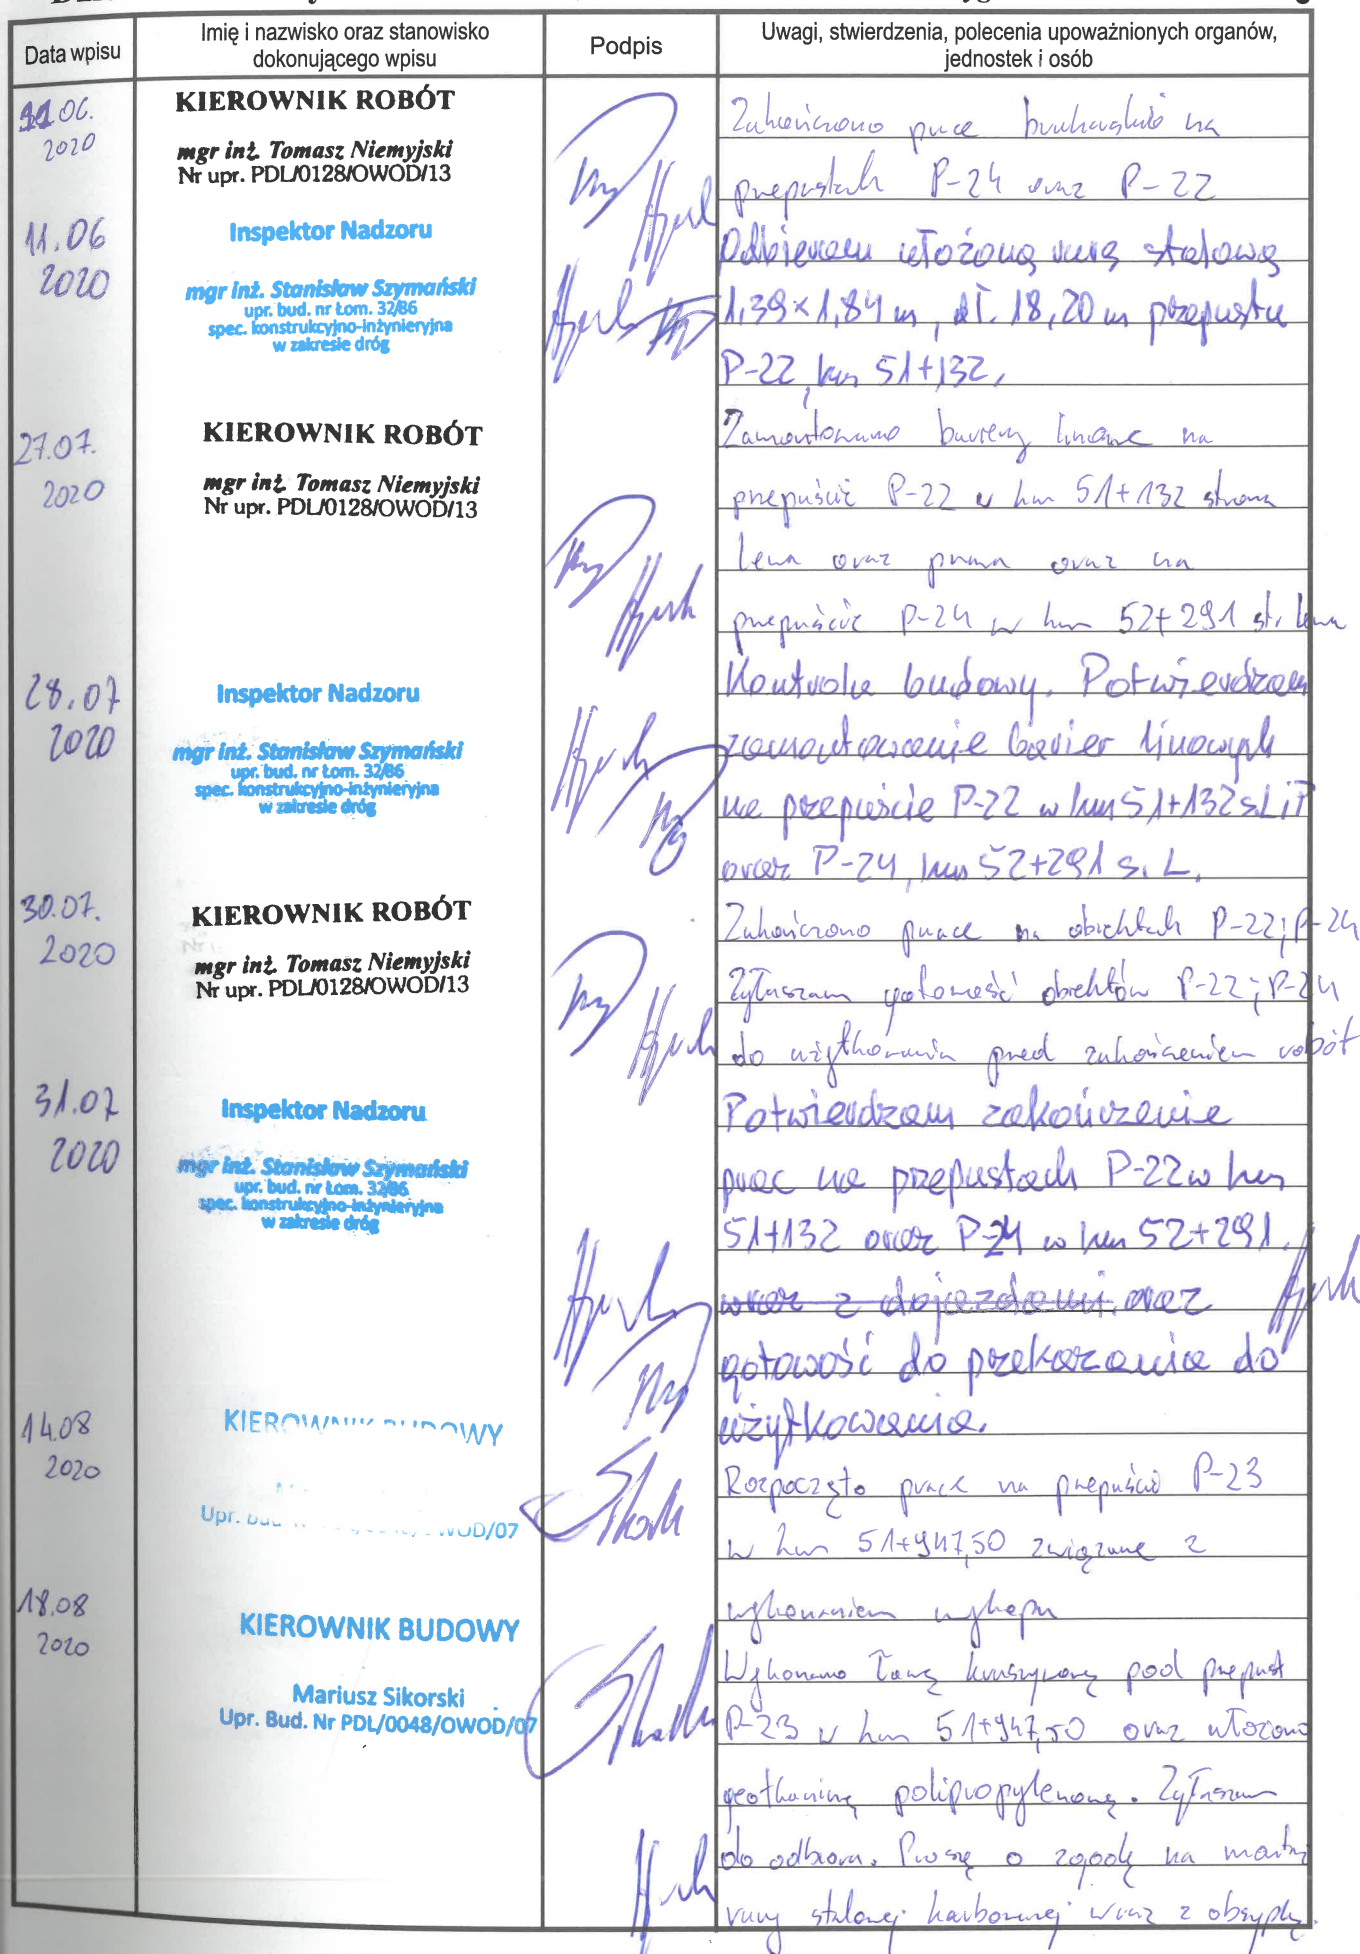 Data wpisu
Imię i nazwisko oraz stanowisko
dokonującego wpisu
Podpis
Uwagi, stwierdzenia, polecenia upoważnionych organów,
jednostek i osób
11.06.
2020
KIEROWNIK ROBÓT
mgr inż. Tomasz Niemyjski
Nr upr. PDL/0128/OWOD/13
Zakończono prace brukarskie na
przepustach P-24 oraz P-22
11.06
2020
Inspektor Nadzoru
mgr inż. Stanisław Szymański
upr. bud. nr Łom. 32/86
spec. konstrukcyjno-inżynieryjna
w zakresie dróg
Odbieram ułożoną rurę stalową
1,39×1,84 m, dł. 18,20 m przepustu
P-22, km 51+132,
27.07.
2020
KIEROWNIK ROBÓT
mgr inż. Tomasz Niemyjski
Nr upr. PDL/0128/OWOD/13
Zamontowano bariery linowe na
przepuście P-22 w km 51+132 strona
lewa oraz prawa oraz na
przepuście P-24 w km 52+291 st. lewa
28.07
2020
Inspektor Nadzoru
mgr inż. Stanisław Szymański
upr. bud. nr Łom. 32/86
spec. konstrukcyjno-inżynieryjna
w zakresie dróg
Kontrola budowy. Potwierdzam
zamontowanie barier linowych
na przepuście P-22 w km 51+132 s.L i P
oraz P-24, km 52+291 s. L.
30.07.
2020
KIEROWNIK ROBÓT
mgr inż. Tomasz Niemyjski
Nr upr. PDL/0128/OWOD/13
Zakończono prace na obiektach P-22; P-24
Zgłaszam gotowość obiektów P-22; P-24
do użytkowania przed zakończeniem robót
31.07
2020
Inspektor Nadzoru
mgr inż. Stanisław Szymański
upr. bud. nr Łom. 32/86
spec. konstrukcyjno-inżynieryjna
w zakresie dróg
Potwierdzam zakończenie
prac na przepustach P-22 w km
51+132 oraz P-24 w km 52+291.
wraz z dojazdami, oraz
gotowość do przekazania do
użytkowania.
14.08
2020
KIEROWNIK BUDOWY
Upr. Bud. /OWOD/07
Rozpoczęto prace na przepuście P-23
w km 51+947,50 związane z
wykonaniem wykopu
18.08
2020
KIEROWNIK BUDOWY
Mariusz Sikorski
Upr. Bud. Nr PDL/0048/OWOD/07
Wykonano ławę kruszywową pod przepust
P-23 w km 51+947,50 oraz ułożono
geotkaninę polipropylenową. Zgłaszam
do odbioru. Proszę o zgodę na montaż
rury stalowej karbowanej wraz z obsypką.